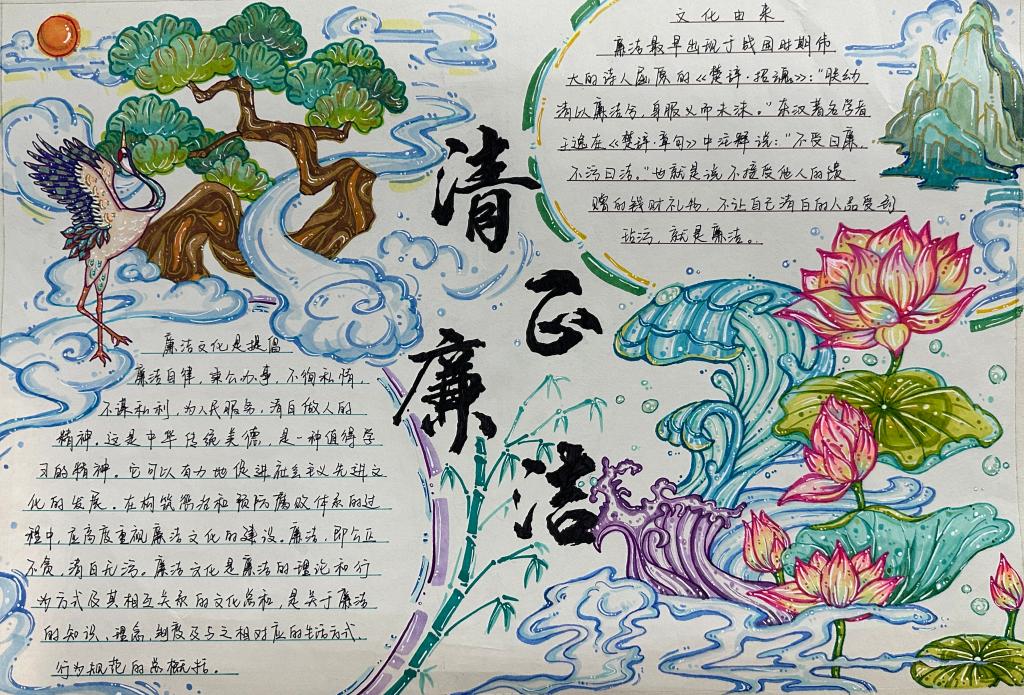 清正
廉洁
文化由来
廉洁最早出现于战国时期伟
大的诗人屈原的《楚辞·招魂》："朕幼
清以廉洁兮，身服义而未沫。"东汉著名学者
王逸在《楚辞·章句》中注释说："不受曰廉，
不污曰洁。"也就是说不接受他人的馈
赠的钱财礼物，不让自己清白的人品受到
玷污，就是廉洁。
廉洁文化是提倡
廉洁自律，秉公办事，不徇私情，
不谋私利，为人民服务，清白做人的
精神。这是中华传统美德，是一种值得学
习的精神。它可以有力地促进社会主义先进文
化的发展。在构筑惩治和预防腐败体系的过
程中，应高度重视廉洁文化的建设。廉洁，即公正
不贪，清白无污。廉洁文化是廉洁的理论和行
为方式及其相互关系的文化总和，是关于廉洁
的知识、理念、制度及与之相对应的生活方式、
行为规范的总概括。